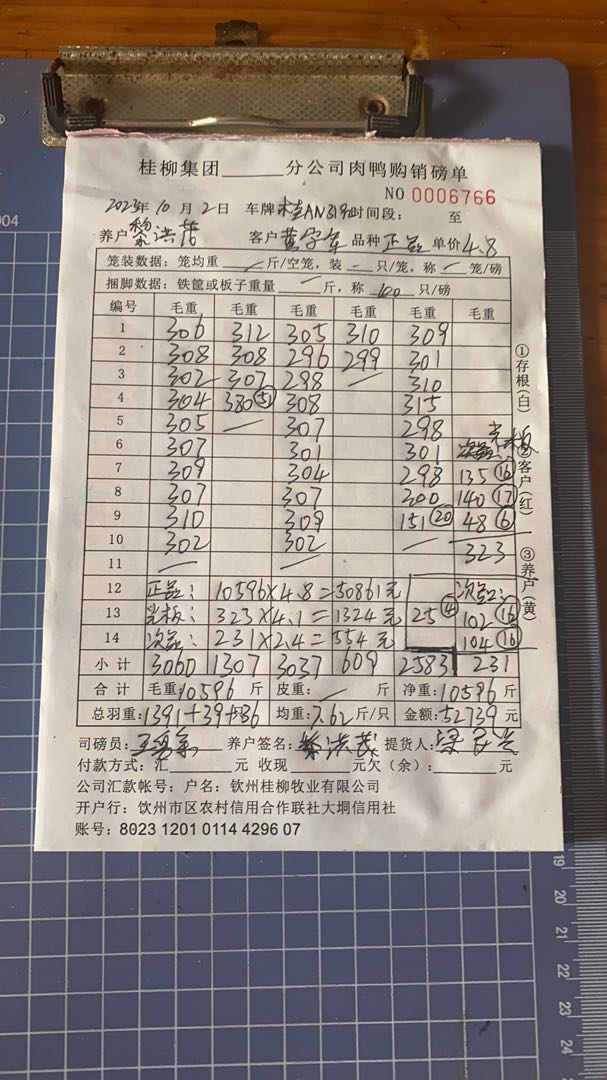 桂柳集团______分公司肉鸭购销磅单
NO 0006766
2023年10月2日 车牌 桂AN319 时间段： 至
养户 黎洪茂 客户 黄宇军 品种 正品 单价 4.8
笼装数据：笼均重 / 斤/空笼，装 — 只/笼，称 / 笼/磅
捆脚数据：铁筐或板子重量 — 斤，称 100 只/磅
编号 毛重 毛重 毛重 毛重 毛重 毛重
1 306 312 305 310 309
2 308 308 296 299 301
3 302 307 298 — 310
4 304 380 (51) 308 315
5 305 — 307 298 光板
6 307 301 301 次品：
7 309 304 298 135 (16)
8 307 307 300 140 (17)
9 310 309 151 (20) 48 (6)
10 302 302 — 323
11 — —
12 正品： 10596×4.8=50861元 次品：
13 光板： 323×4.1=1324元 25 (4) 102 (16)
14 次品： 231×2.4=554元 104 (16)
小计 3060 1307 3037 609 2583 231
合计 毛重：10596 斤 皮重： / 斤 净重：10596 斤
总羽重：1391+39+36 均重：7.62 斤/只 金额：52739 元
司磅员： 养户签名：黎洪茂 提货人：
付款方式：汇______元 收现______元欠（余）：______元
公司汇款帐号：户名：钦州桂柳牧业有限公司
开户行：钦州市区农村信用合作联社大垌信用社
账号：8023 1201 0114 4296 07
①存根(白)
②客户(红)
③养户(黄)
004
19
20
21
22
23
24